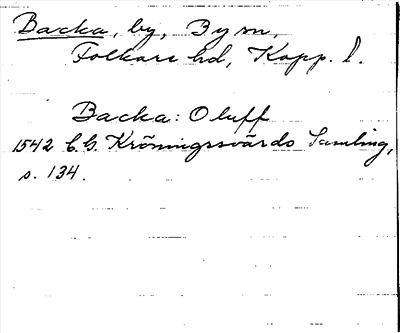 Backa, by, By sn,
Folkare hd, Kopp. l.
Backa: Oluff
1542 C.G. Kröningssvärds Samling,
s. 134.